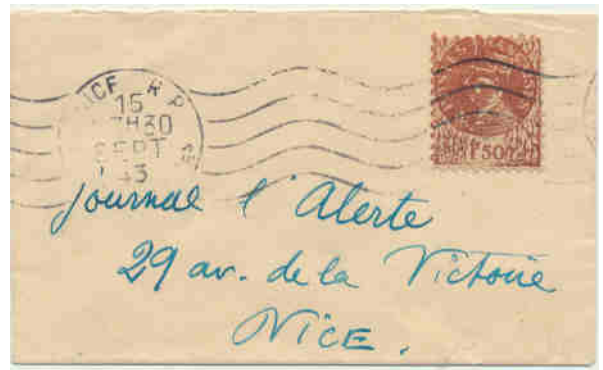 NICE R P
15
H30
SEPT
43
1F50
journal l'Alerte
29 av. de la Victoire
NICE.